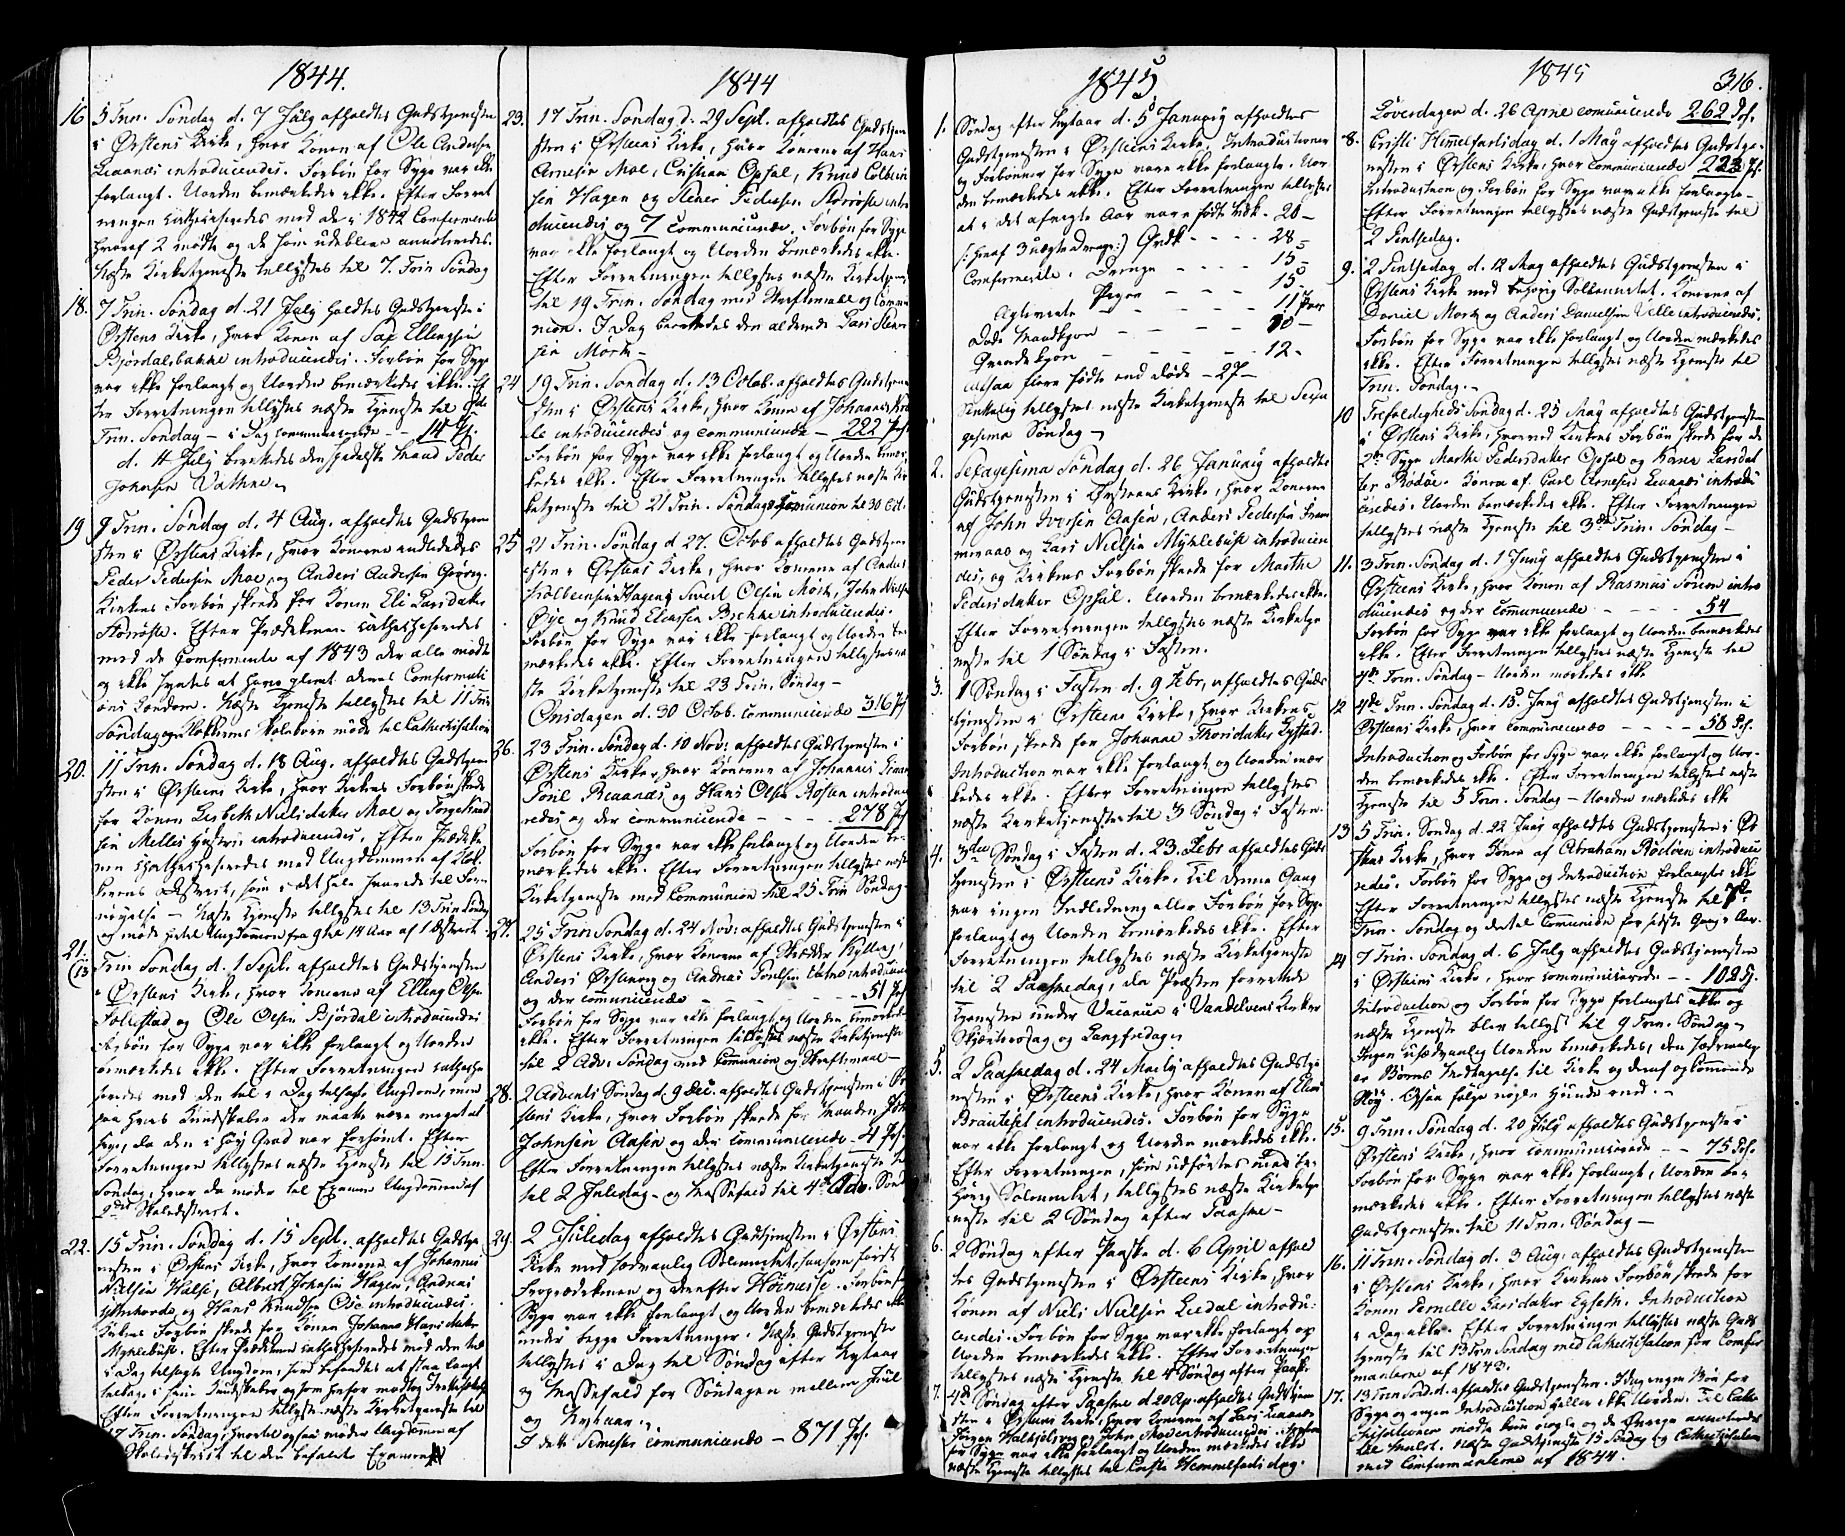 1844.
16 5 Trin. Søndag d. 7 July afholdtes Gudstjenesten
i Ørstens Kirke, hvor Konen af Ole Andersen
Leaanæs introducendis. Forbøn for Syge var ikke
forlangt. Uorden bemærkedes ikke. Efter Forret
ningen catheciseredes med de i 1842 Confirmerede
hvoraf 2 mødte og de som udebleve annoteredes.
Næste Kirketjeneste tellystes til 7. Trin Søndag
18. 7 Trin. Søndag d. 21 July holdtes Gudstjeneste i
Ørstens Kirke, hvor Konen af Sax Ellingsen
Bjørdalsbakke introducendis. Forbøn for Syge
var ikke forlangt og Uorden bemærkedes ikke. Ef
ter Forretningen tellystes næste Tjeneste til 9de
Trin. Søndag — i Dag communicerede — 14 Ps.
d. 4 July berettedes den spedalske Mand Peder
Johnsen Vathne.
19 9 Trin. Søndag d. 4 Aug. afholdtes Gudstjene
sten i Ørstens Kirke, hvor Konerne indlededes
Peder Pedersen Moe, og Anders Andersen
Kirkens Forbøn skede for Konen Eli Larsdatter
Storøste. Efter Prædiken catheciseredes
med de Confirmerede af 1843 der alle mødte
og ikke syntes at have glemt deres Confirmati
ons Lærdom. Næste Tjeneste tellystes til 11 Trin
Søndag og Klokkerens Skolebørn møde til Cathechisation
20. 11 Trin. Søndag d. 18 Aug. afholdtes Gudstjene
sten i Ørstens Kirke, hvor Kirkens Forbøn skede
for Konen Lisbeth Nielsdatter Moe og
sen Melles Hustru introducendis. Efter Prædike
nen catheciseredes med Ungdommen af Klok
kerens District, som i det hele svarede til For
nøyelse — Næste Tjeneste tellystes til 13 Trin Søndag
og møde hertil Ungdommen fra 9 til 14 Aar af 1 District.
21. (13 Trin Søndag d. 1 Sept. afholdtes Gudstjenesten
i Ørstens Kirke, hvor Konerne af Elling Olsen
Follestad og Ole Olsen Bjørdal introducendis
Forbøn for Syge var ikke forlangt og Uorden
bemærkedes ikke. Efter Forretningen catheche
seredes med den til i Dag tilsagte Ungdom, men
paa hvis Kundskaber der maatte være meget at
sige, da den i høy Grad var forsømt. Efter
Forretningen tellystes næste Tjeneste til 15 Trin.
Søndag, hvor da møder til Examen Ungdommen af
2det Skoledistrict.
22. 15 Trin. Søndag d. 15 Sept. afholdtes Gudstje
nesten i Ørstens Kirke, hvor Konerne af Johannes
Nielsen Halse, Albert Johnsen Hagen, Andreas
og Hans Knudsen Øie introducendis.
Kirkens Forbøn skede for Konen Johanne Hansdatter
Myklebust. Efter Prædiken catheciseredes med den til
i Dag tilsagte Ungdom, som befandtes at staa langt
tilbage i sine Kundskaber
Efter Forretningen tellystes næste Kirketjeneste til
17 Trin. Søndag, hvortil ogsaa møder Ungdommen af
Skoledistrict til den befalede Examen
1844
23. 17 Trin. Søndag d. 29 Sept. afholdtes Gudstjene
sten i Ørstens Kirke, hvor Konerne af Hans
Arnesen Moe, Cristian Opsal, Knud Colbein
sen Hagen og Stener Pedersen Storøste intro
ducendis og 7 communicerede. Forbøn for Syge
var ikke forlangt og Uorden bemærkedes ikke.
Efter Forretningen tellystes næste Kirketjeneste
til 19 Trin. Søndag med Skriftemaal og Commu
nion. I Dag berettedes den aldrende Lars Steen
sen Mørk —
24 19 Trin. Søndag d. 13 Octob. afholdtes Gudstjene
sten i Ørstens Kirke, hvor Konen af Johannes
introducendis og communicerede — 222 Ps.
Forbøn for Syge var ikke forlangt og Uorden bemær
kedes ikke. Efter Forretningen tellystes næste Kir
ketjeneste til 21 Trin. Søndag og Comunion til 30 Oct.
25 21 Trin. Søndag d. 27. Octob afholdtes Gudstjene
sten i Ørstens Kirke, hvor Konerne af Anders
Kolbeinsen Hagen, Sivert Olsen Mørk, John Nielsen
Øye og Knud Eliassen Brekke introducendis.
Forbøn for Syge var ikke forlangt og Uorden be
mærkedes ikke. Efter Forretningen tellystes næ
ste Kirketjeneste til 23 Trin. Søndag —
Onsdagen d. 30 Octob. communicerede 316 Ps
26. 23 Trin. Søndag d. 10 Nov: afholdtes Gudstjenesten i
Ørstens Kirke, hvor Konerne af Johannes
Poul Leaanæs og Hans Olsen Rosten introdu
redes og der communicerede — 278 Ps
Forbøn for Syge var ikke forlangt og Uorden be
mærkedes ikke. Efter Forretningen tellystes næste
Kirketjeneste med Communion til 25 Trin Søndag
27. 25 Trin Søndag d. 24 Nov: afholdtes Gudstjenesten i
Ørstens Kirke, hvor Konerne af Skrædder
Anders Ørstenvig og Andreas Poulsen introducendis
og der communicerede — 51 Ps
Forbøn for Syge var ikke forlangt og Uorden bemærkedes
ikke. Efter Forretningen tellystes næste Kirketjeneste
til 2 Adv. Søndag med Communion og Skriftemaal —
28. 2 Advents Søndag d. 9 Dec. afholdtes Gudstjenesten i Ør
stens Kirke, hvor Forbøn skede for Manden
Johnsen Aasen og der communicerede — 4 Ps.
Efter Forretningen tellystes næste Kirketjeneste til
til 2 Juledag — og Messefald til 4de Adv. Sønd
29. 2 Juledag afholdtes Gudstjenesten i Ørstens
Kirke med sædvanlig Solemnitet, saasom først
Froprædiken og derefter Høimesse. Forbøn for
Syge var ikke forlangt og Uorden bemærkedes ikke
under begge Forretninger. Næste Gudstjeneste
tellystes i Dag til Søndag efter Nytaar
og Messefald for Søndagen mellem Juul
og Nytaar.
I dette Semester communicerede — 871 Ps.
1845
1. Søndag efter Nytaar d. 5 January afholdtes
Gudstjenesten i Ørstens Kirke. Introductioner
og Forbønner for Syge vare ikke forlangte. Uor
den bemærkedes ikke. Efter Forretningen tellystes
at i det afvigte Aar vare fødte Mdk. 20 —
(: heraf 3 uægte Drenge:) Qvdk - - - - 28 -
Confirmerede, Drenge - - - - 15 -
Piger - - - - 15 -
Ægteviede - - - - 11 Par
Døde Mandkjøn - - - - 10 —
Qvindekjøn - - - - 12 -
altsaa flere fødte end døde — 27 —
Endelig tellystes næste Kirketjeneste til Sexa
gesima Søndag —
2. Sexagesima Søndag d. 26 January afholdtes
Gudstjenesten i Ørstens Kirke, hvor Konerne
af John Iversen Aasen, Anders Pedersen
og Lars Nielsen Myklebust introducen
dis, og Kirkens Forbøn skede for Marthe
Pedersdatter Opsal. Uorden bemærkedes ikke.
Efter Forretningen tellystes næste Kirketje
neste til 1 Søndag i Fasten.
3. 1 Søndag i Fasten d. 9 Febr. afholdtes Guds
tjenesten i Ørstens Kirke, hvor Kirkens
Forbøn skede for Johanne Thorsdatter
Introduction var ikke forlangt og Uorden mær
kedes ikke. Efter Forretningen tellystes
næste Kirketjeneste til 3 Søndag i Fasten.
4. 3die Søndag i Fasten d. 23. Febr afholdtes Guds
tjenesten i Ørstens Kirke. Til denne Gang
var ingen Indledning eller Forbøn for Syge
forlangt og Uorden bemærkedes ikke. Efter
Forretningen tellystes næste Kirketjeneste
til 2 Paaskedag, da Præsten forrettede
Tjenesten under Vacance i Vandelvens Kirke
Skjærtorsdag og Langfredag.
5. 2 Paaskedag d. 24 Marts afholdtes Gudstje
nesten i Ørstens Kirke, hvor Konen af Elias
Brauteset introducendis. Forbøn for Syge
var ikke forlangt og Uorden mærkedes ikke.
Efter Forretningen, som udførtes med be
hørig Solemnitet, tellystes næste Kirketje
neste til 2 Søndag efter Paaske —
6. 2 Søndag efter Paaske d. 6 April afhold
tes Gudstjenesten i Ørstens Kirke, hvor
Konen af Niels Nielsen Leedal introdu:
cendis. Forbøn for Syge var ikke forlangt og
Uorden bemærkedes ikke. Efter Forretningen
tellystes næste Tjeneste til 4 Søndag efter Paaske
7. 4de Søndag efter Paaske d. 20 Ap. afholdtes Gudstjene
sten i Ørstens Kirke, hvor Konerne af Lars Leaanæs
Jørgen og John Moe introducendis. Forbøn
for Syge var ikke forlangt og Uorden mærkedes ikke
næste Tjeneste tellystes til Cristi Himmelfartsdag.
1845 316.
Løverdagen d. 26 April comunicerede 262 Ps.
8. Cristi Himmelfartsdag d. 1 May afholdtes Gudstje
nesten i Ørstens Kirke, hvor communicerede 223 Ps.
Introduction og Forbøn for Syge var ikke forlangte.
Efter Forretningen tellystes næste Gudstjeneste til
2 Pintsedag.
9. 2 Pintsedag d. 12 May afholdtes Gudstjenesten i
Ørstens Kirke med behørig Solemnitet. Konerne af
Daniel Mork og Anders Danielsen Velle introducendis.
Forbøn for Syge var ikke forlangt og Uorden mærkedes
ikke. Efter Forretningen tellystes næste Tjeneste til
Trin. Søndag. —
10 Trefoldigheds Søndag d. 25 May afholdtes Gudstjenesten
i Ørstens Kirke, hvorved Kirkens Forbøn skede for de
2de Syge Marthe Pedersdatter Opsal og Karen Larsdat
ter Rødøe. Konen af Carl Arnesen Leaanæs introdu
cendis. Uorden bemærkedes ikke. Efter Forretningen
tellystes næste Tjeneste til 3de Trin. Søndag —
11. 3 Trin. Søndag d. 1 Juny afholdtes Gudstjenesten i
Ørstens Kirke, hvor Konen af Rasmus intro
ducendis og der comunicerede - - - - 54
Forbøn for Syge var ikke forlangt og Uorden bemærkedes
ikke. Efter Forretningen tellystes næste Tjeneste til
4de Trin. Søndag — Uorden mærkedes ikke
12 4de Trin. Søndag d. 15 Juny afholdtes Gudstjenesten i
Ørstens Kirke, hvor communicerede - - - - 58 Ps.
Introduction og Forbøn for Syge var ikke forlangt og Uor
den bemærkedes ikke. Efter Forretningen tellystes næste
Tjeneste til 5 Trin. Søndag — Uorden mærkedes ikke
13 5 Trin. Søndag d. 22 Juny afholdtes Gudstjenesten i Ør
stens Kirke, hvor Konen af Abraham Rødven introduce
redes. Forbøn for Syge og Introduction forlangtes ikke
Efter Forretningen tellystes næste Tjeneste til 7de
Trin. Søndag og dertil Communion for sidste Gang i Aar.
14 7 Trin. Søndag d. 6 July afholdtes Gudstjenesten
i Ørstens Kirke, hvor communicerede — 108 Ps.
Introduction og Forbøn for Syge forlangtes ikke og
næste Tjeneste blev tellyst til 9 Trin. Søndag —
Ingen usædvanlig Uorden bemærkedes, den sædvanlige
er Børns Medtagelse til Kirke og deraf opkommende
Støy. Ogsaa følge nogle Hunde med. —
15. 9 Trin. Søndag d. 20 July afholdtes Gudstjeneste i
Ørstens Kirke, hvor communicerede — 75 Ps.
Forbøn for Syge var ikke forlangt, Uorden be
mærkedes ikke. Efter Forretningen tellystes næste
Gudstjeneste til 11 Trin. Søndag —
16. 11 Trin. Søndag d. 3 Aug. afholdtes Gudstjenesten
i Ørstens Kirke, hvor Kirkens Forbøn skede for
Konen Pernille Larsdatter Egseth. Introduction
i Dag ikke. Efter Forretningen tellystes næste Guds
tjeneste til 13 Trin Søndag med Cathechisation for Confir
manterne af 1843.
17. 13 Trin Sønd. d. afholdtes Gudstjenesten. I Dag ingen Bøn for
Syge og ingen Introduction heller ikke Uorden. Til Cathe
chisationen mødte kun nogle og de øvrige annoteredes
til Mulct. Næste Gudstjeneste 15 Søndag og Cathechisation
med Confirmanterne af 1844.